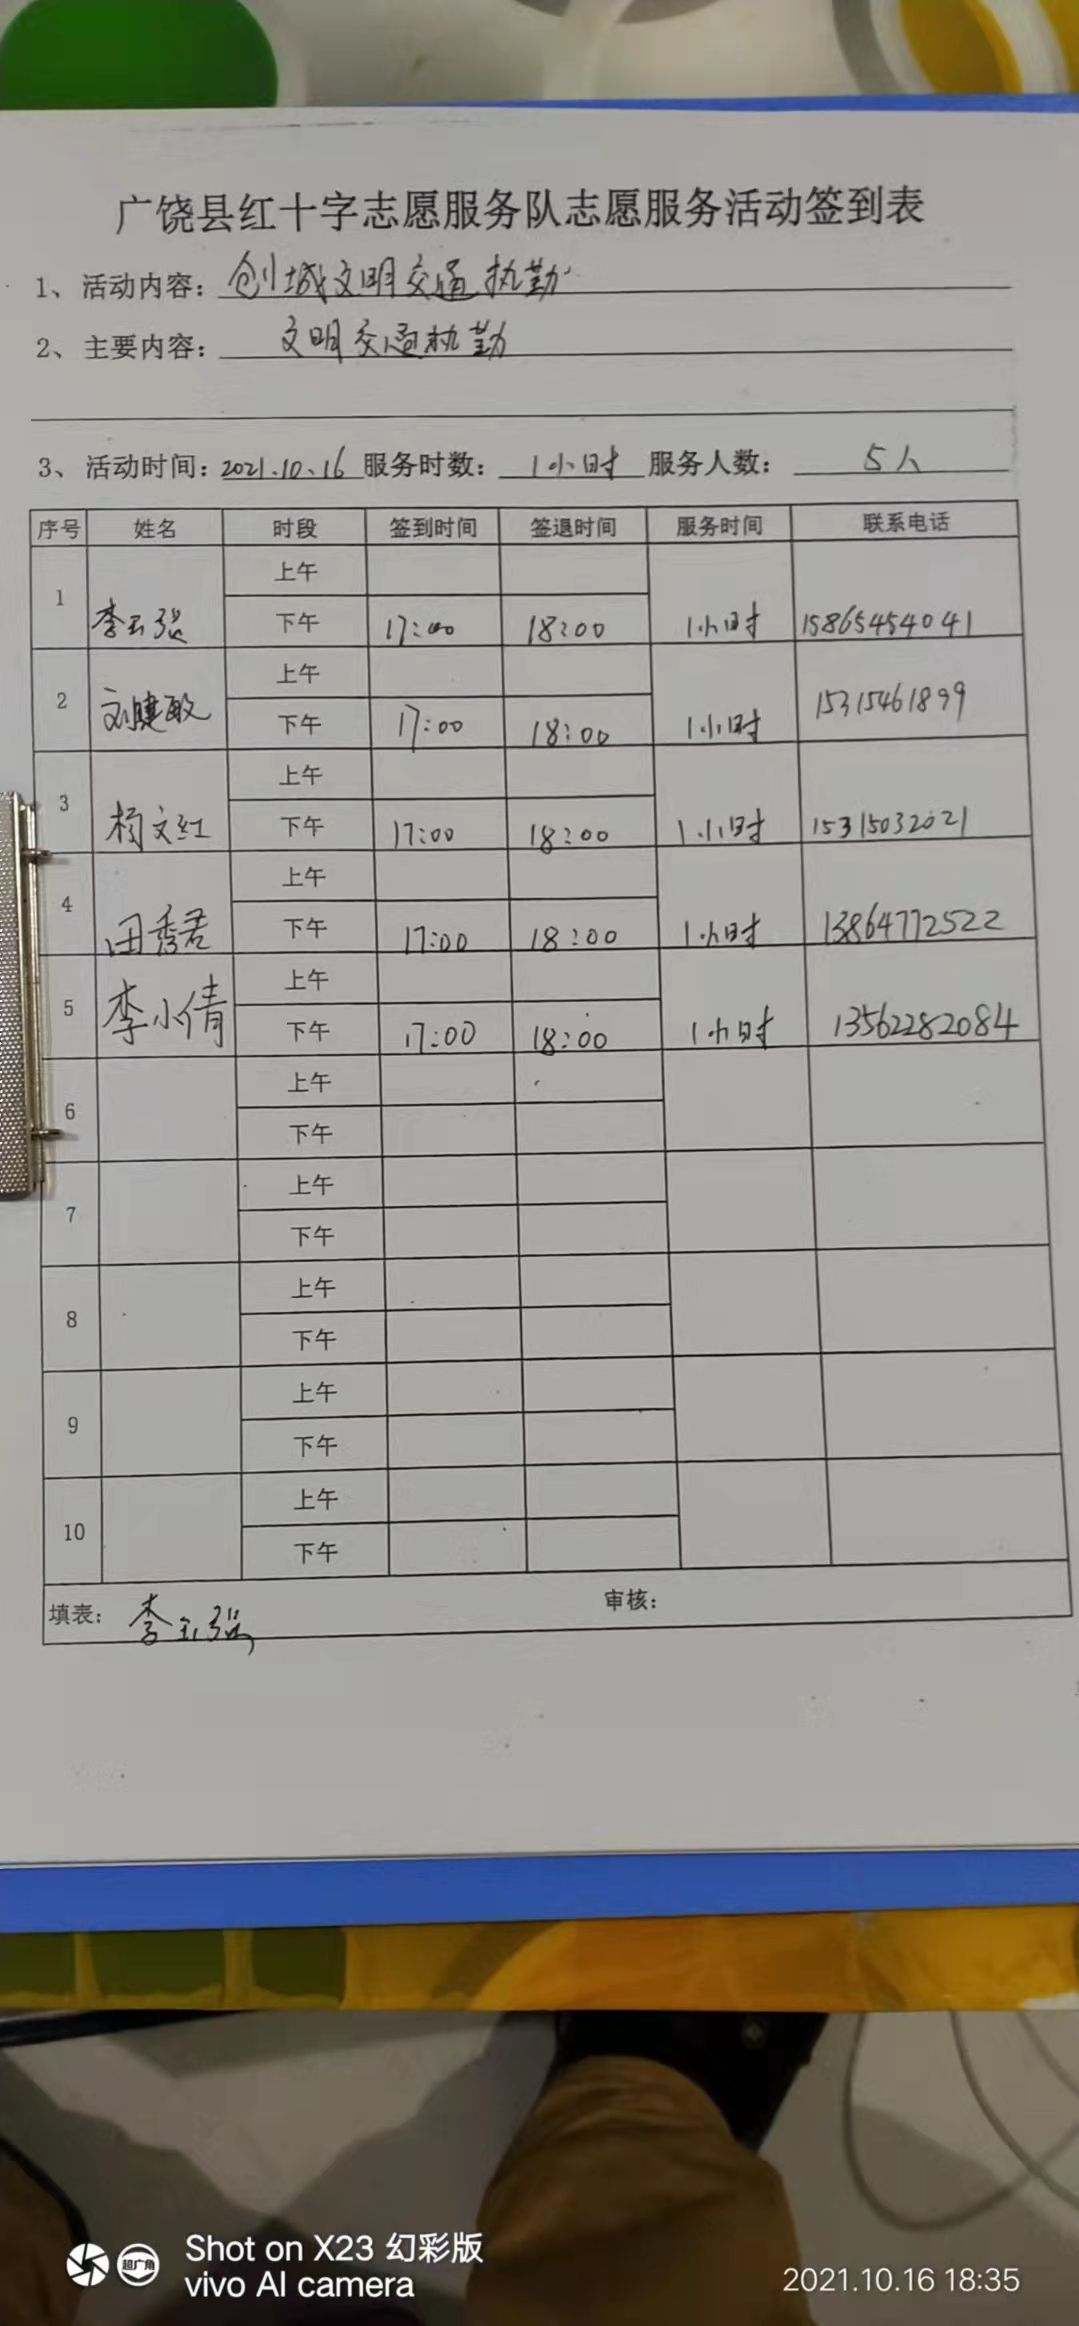 广饶县红十字志愿服务队志愿服务活动签到表
1、活动内容：创城文明交通执勤
2、主要内容：文明交通执勤
3、活动时间：2021.10.16 服务时数：1小时 服务人数：5人
序号 姓名 时段 签到时间 签退时间 服务时间 联系电话
1 李玉强 上午
下午 17:00 18:00 1小时 15865454041
2 刘建敏 上午
下午 17:00 18:00 1小时 15315461899
3 杨文红 上午
下午 17:00 18:00 1小时 15315032021
4 田秀君 上午
下午 17:00 18:00 1小时 13864772522
5 李小倩 上午
下午 17:00 18:00 1小时 13562282084
6 上午
下午
7 上午
下午
8 上午
下午
9 上午
下午
10 上午
下午
填表：李玉强 审核：
超广角
Shot on X23 幻彩版
vivo AI camera
2021.10.16 18:35